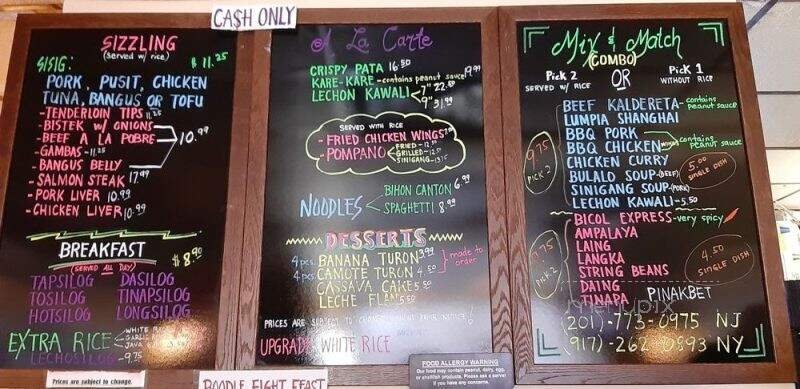 CA$H ONLY
SIZZLING
(SERVED W/ RICE)
SISIG: $11.25
PORK, PUSIT, CHICKEN
TUNA, BANGUS OR TOFU
-TENDERLOIN TIPS 11.25
-BISTEK W/ ONIONS
-BEEF A LA POBRE 10.99
-GAMBAS-11.25
-BANGUS BELLY
-SALMON STEAK 17.99
-PORK LIVER 10.99
-CHICKEN LIVER 10.99
BREAKFAST $8.90
(SERVED ALL DAY)
TAPSILOG DASILOG
TOSILOG TINAPSILOG
HOTSILOG LONGSILOG
EXTRA RICE WHITE
GARLIC
JAVA
LECHOSILOG-9.75
Prices are subject to change.
A La Carte
CRISPY PATA 16.50
KARE-KARE-contains peanut sauce 19.99
LECHON KAWALI 7" 22.50
9" 31.99
SERVED WITH RICE
-FRIED CHICKEN WINGS
-POMPANO FRIED-12.50
GRILLED-12.50
SINIGANG-13.75
NOODLES BIHON CANTON 6.99
SPAGHETTI 8.99
DESSERTS
4 pcs. BANANA TURON 3.99 made to
4 pcs. CAMOTE TURON 4.50 order
CASSAVA CAKE 5.50
LECHE FLAN 5.50
PRICES ARE SUBJECT TO CHANGE WITHOUT PRIOR NOTICE!
UPGRADE WHITE RICE
BOODLE FIGHT FEAST
FOOD ALLERGY WARNING
Our food may contain peanut, dairy, egg,
or shellfish products. Please ask a server
if you have any concerns.
Mix & Match
(COMBO)
Pick 2 OR Pick 1
SERVED W/ RICE WITHOUT RICE
BEEF KALDERETA-contains peanut sauce
LUMPIA SHANGHAI
BBQ PORK
BBQ CHICKEN contains peanut sauce
CHICKEN CURRY
BULALO SOUP (BEEF)
SINIGANG SOUP (PORK)
LECHON KAWALI-5.50
9.75 PICK 2
5.00 SINGLE DISH
BICOL EXPRESS-very spicy
AMPALAYA
LAING
LANGKA
STRING BEANS
DAING
TINAPA PINAKBET
PICK 2
4.50 SINGLE DISH
menupix
(201)-773-0975 NJ
(917)-262-0893 NY